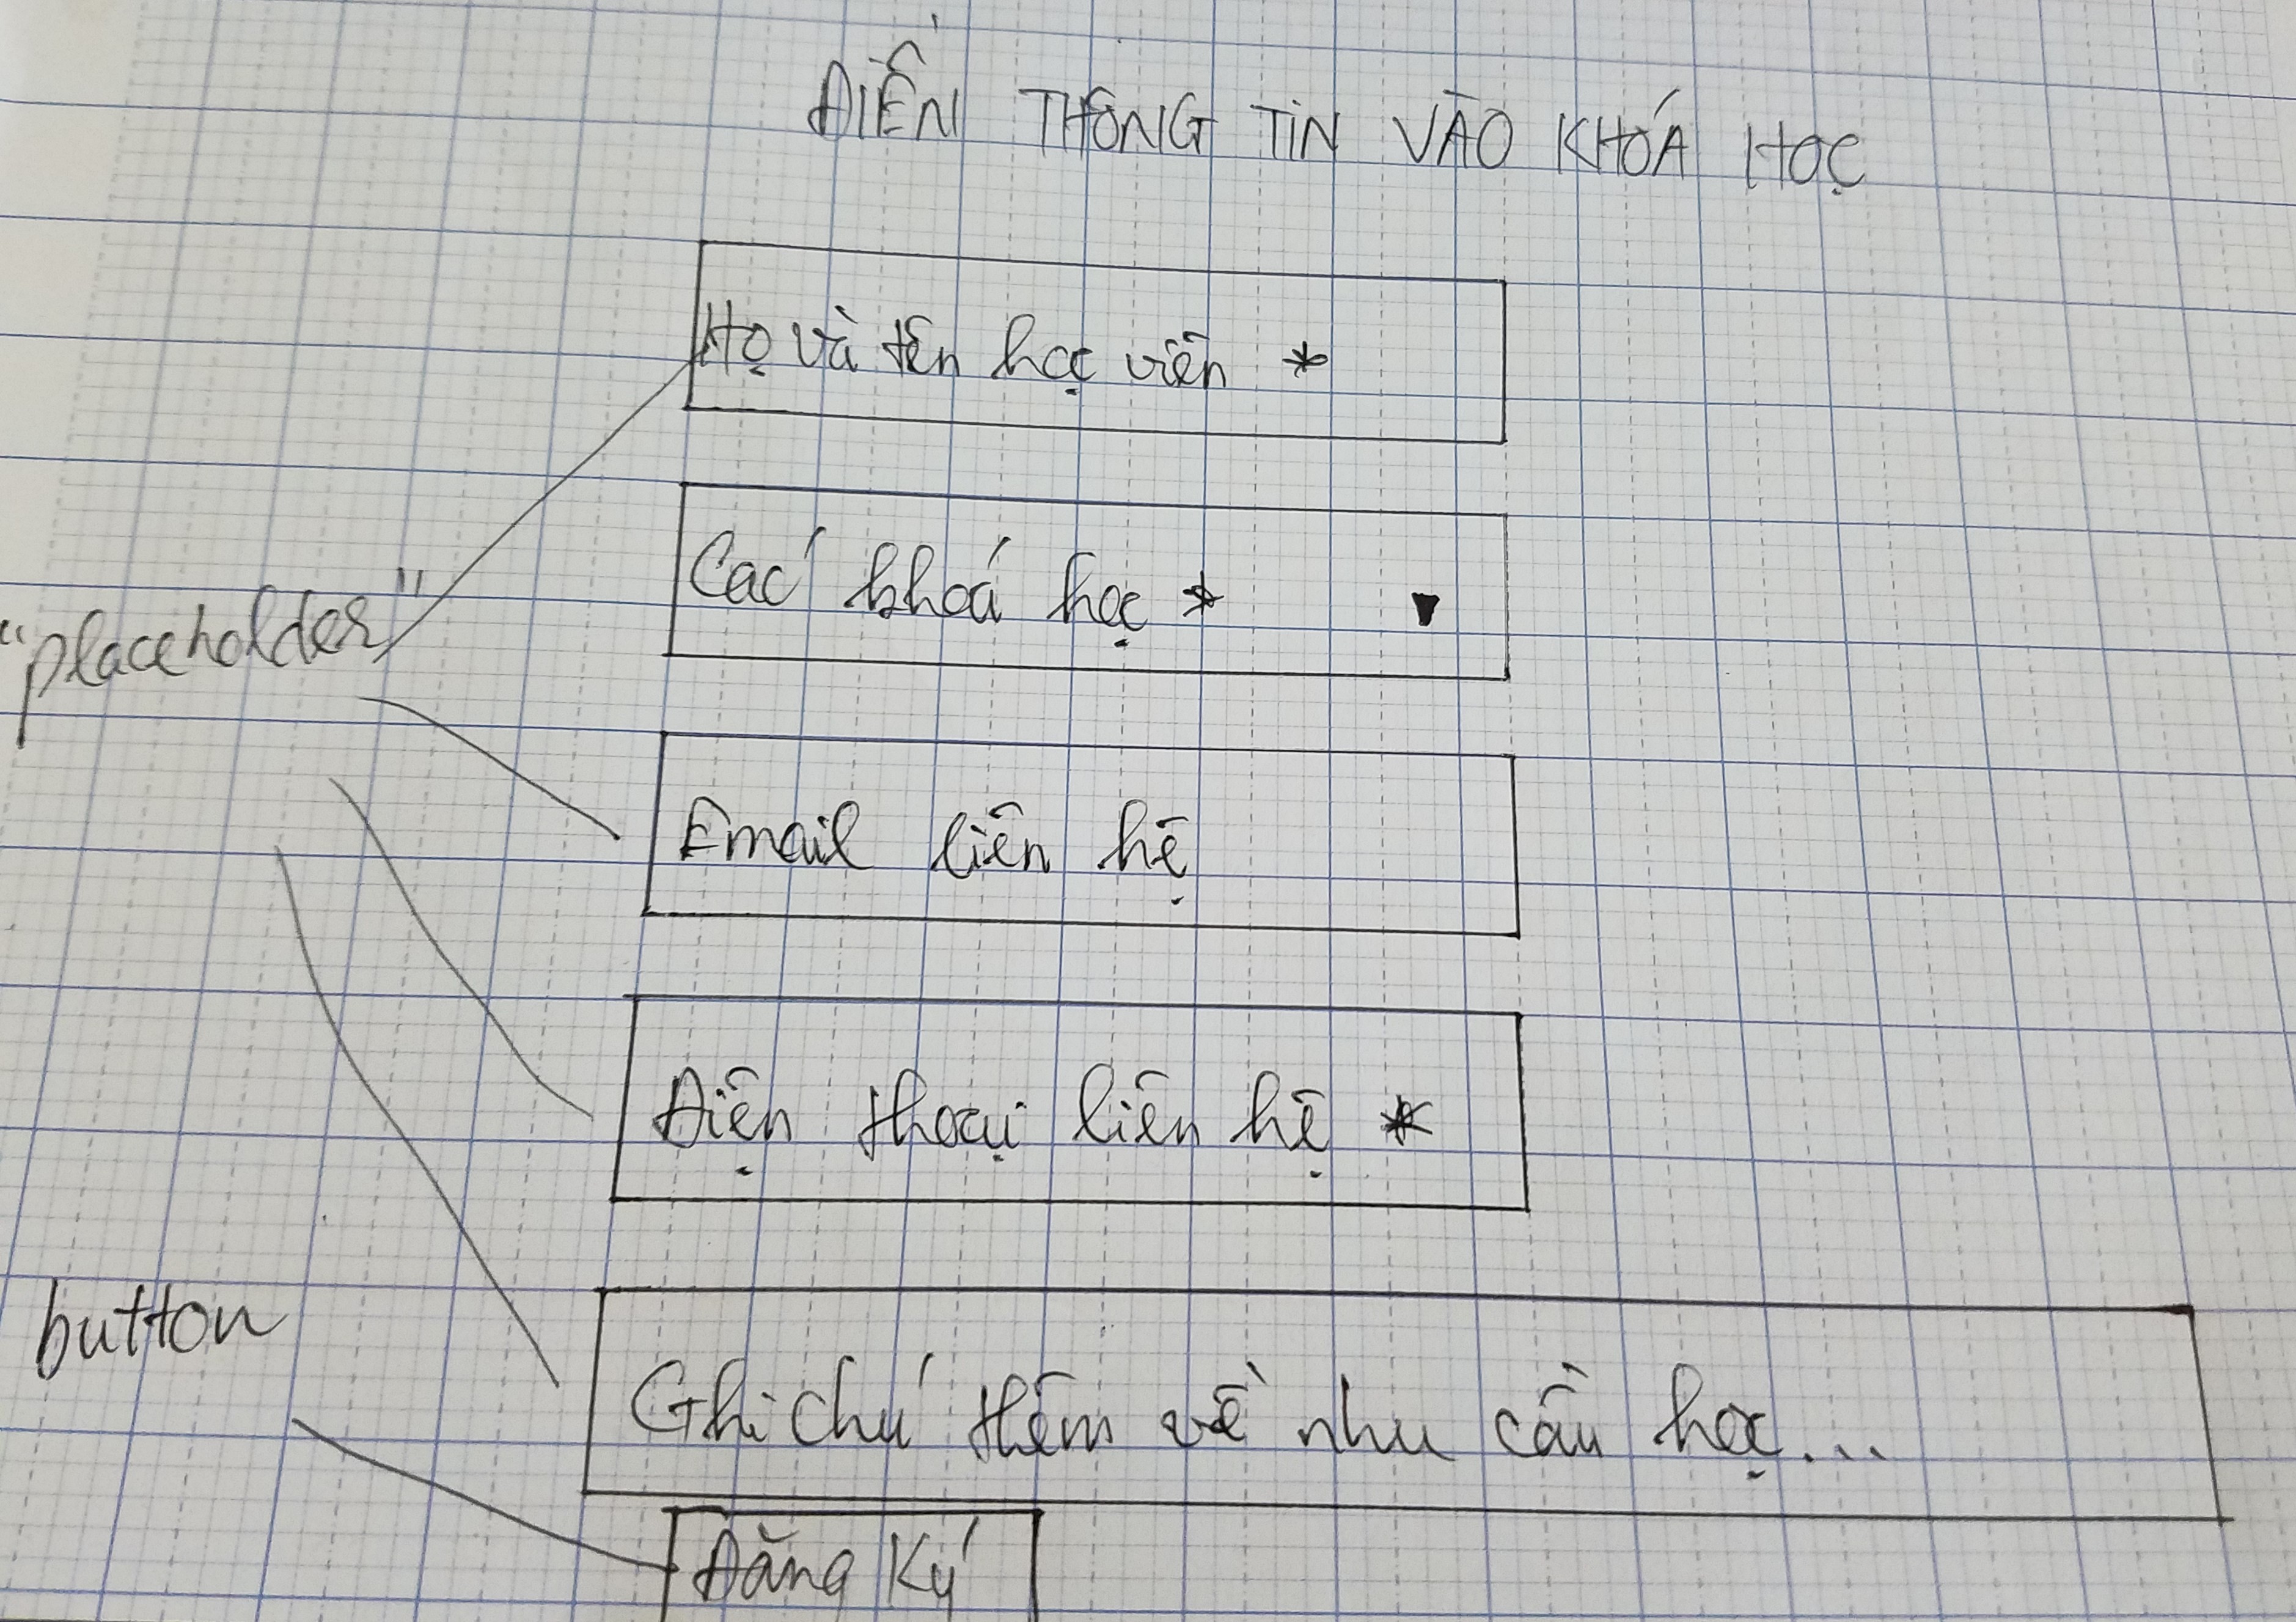 ĐIỀN THÔNG TIN VÀO KHÓA HỌC
Họ và tên học viên *
Các khoá học * ▼
"placeholder"
Email liên hệ
Điện thoại liên hệ *
button
Ghi chú thêm về nhu cầu học...
Đăng Ký